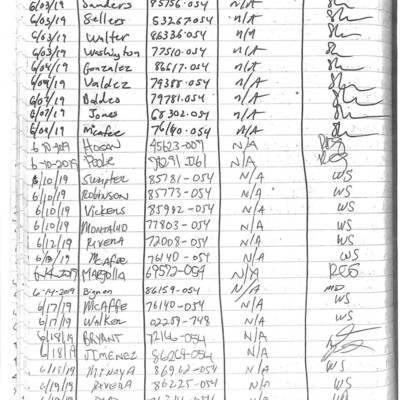 6/03/19 Sanders 85756-054 n/A
6/03/19 Sellers 53267-054 n/A
6/03/19 Walter 86336-054 n/A
6/03/19 Washington 77510-054 N/A
6/04/19 Gonzalez 86617-054 N/A
6/04/19 Valdez 79388-054 N/A
6/07/19 79781-054 N/A
6/07/19 Jones 68302-054 N/A
6/09/19 Mcafee 76140-054 N/A
6-10-2019 Hogan 45623-007 N/A RCS
6-10-2019 Poole N/A RCS
6/10/19 Sumpter 85781-054 N/A WS
6/10/19 Robinson 85773-054 N/A WS
6/10/19 Vickens 85942-054 N/A WS
6/10/19 Montalvo 77803-054 N/A WS
6/12/19 Rivera 72008-054 N/A WS
McAfee 76140-054 N/A WS
6-14-2019 69572-054 N/A RCS
6-14-2019 Bignon 86159-054 N/A MD
6/17/19 McAffe 76140-054 N/A WS
6/17/19 Walker 02259-748 N/A WS
6/18/19 BRYANT 72146-054 N/A
6/18/19 JIMENEZ 86264-054 N/A
Minaya 86962-054 N/A WS
6/19/19 Rivera 86225-054 N/A WS